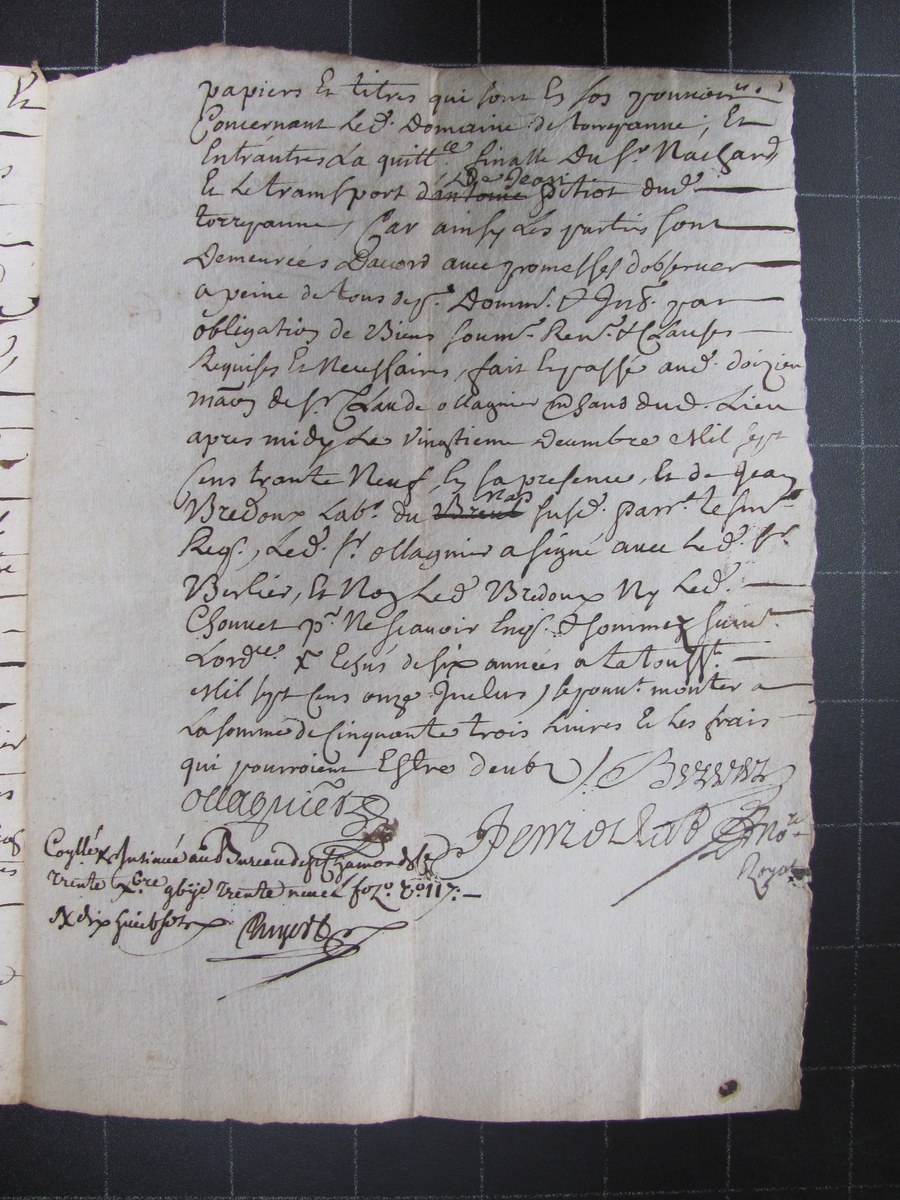 papiers Et titres qui sont En son pouvoir
Concernant Led. Domaine de torryanne, Et
Entrautres La quitt.ce finalle Du Sr. Nachard
De Jean
Et Le transport d'antoine pitiot dud.
torryanne, Car ainsy Les parties sont
Demeurées Dacord avec promesses d'observer
a peine de tous desp. Domm. & Int. par
obligation de Biens soum. Ren. & Clauses
Requises Et Necessaires, fait Et passé aud. doizieu
maon de Sr. Claude ollagnier mchand dud. Lieu
apres midy Le vingtieme decembre Mil sept
Cens trante Neuf, En sa presence, Et de Jean
Bredoux Lab. du susd. parr.
Req., Led. Sr. ollagnier a signé avec Led. Sr.
Berlier, Et Non Led. Bredoux Ny Led.
Chouvet pr. Ne scavoir Enq. & sommex suiv.
Lord.ce x Echus de six années a La touss.t
Mil sept Cens onze Inclus, se pouv. monter a
La somme de Cinquante trois Livres Et Les frais
qui pourroient Estre deubz
ollagnier
No.re
Royal
Conllé & Insinué au Bureau de St. Chamond Le
trente xbre gbije trente neuf fo. Vo 117.
Rx dix huit sols